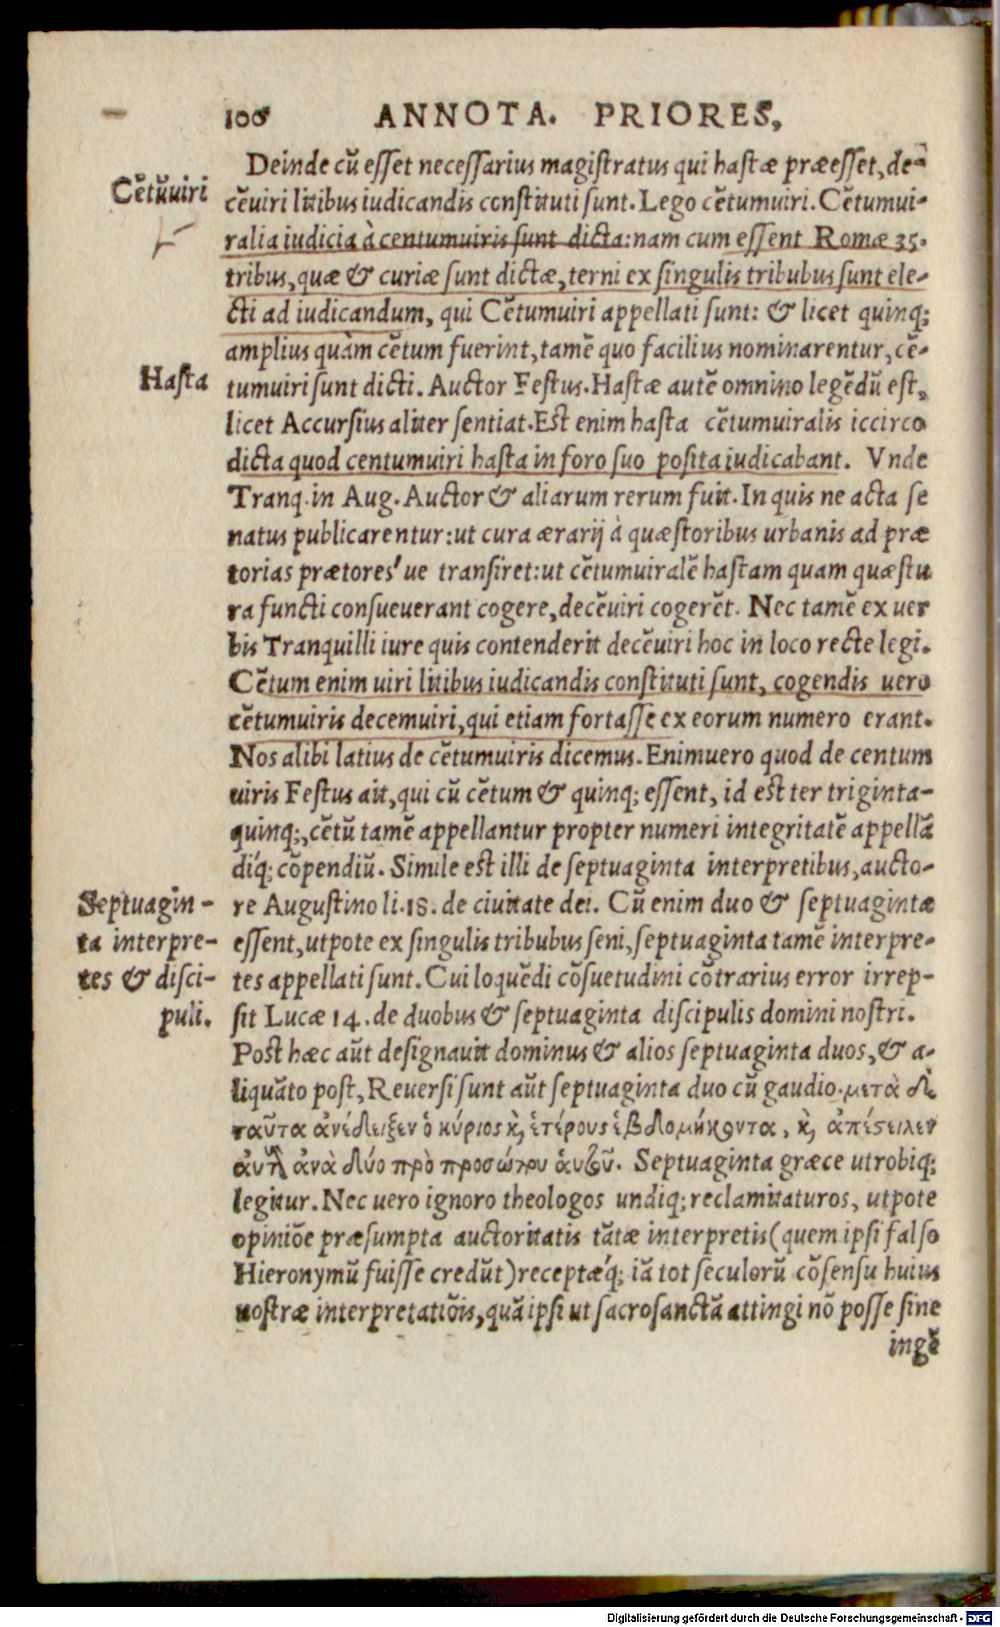 100 ANNOTA. PRIORES,
Deinde cũ esset necessarius magistratus qui hastæ præesset, de-
Cẽtũuiri
cẽuiri litibus iudicandis constituti sunt. Lego cẽtumuiri. Cẽtumui-
ralia iudicia à centumuiris sunt dicta: nam cum essent Romæ 35.
tribus, quæ & curiæ sunt dictæ, terni ex singulis tribubus sunt ele-
cti ad iudicandum, qui Cẽtumuiri appellati sunt: & licet quinq;
amplius quàm cẽtum fuerint, tamẽ quo facilius nominarentur, cẽ-
Hasta
tumuiri sunt dicti. Auctor Festus. Hastæ autẽ omnino legẽdũ est,
licet Accursius aliter sentiat. Est enim hasta cẽtumuiralis iccirco
dicta quod centumuiri hasta in foro suo posita iudicabant. Vnde
Tranq. in Aug. Auctor & aliarum rerum fuit. In quis ne acta se
natus publicarentur: ut cura ærarij à quæstoribus urbanis ad præ
torias prætores' ue transiret: ut cẽtumuiralẽ hastam quam quæstu
ra functi consueuerant cogere, decẽuiri cogerẽt. Nec tamẽ ex uer
bis Tranquilli iure quis contenderit decẽuiri hoc in loco recte legi.
Cẽtum enim uiri litibus iudicandis constituti sunt, cogendis uero
cẽtumuiris decemuiri, qui etiam fortasse ex eorum numero erant.
Nos alibi latius de cẽtumuiris dicemus. Enimuero quod de centum
uiris Festus ait, qui cũ cẽtum & quinq; essent, id est ter triginta-
quinq;, cẽtũ tamẽ appellantur propter numeri integritatẽ appellã
diq́; cõpendiũ. Simile est illi de septuaginta interpretibus, aucto-
Septuagin-
ta interpre-
tes & disci-
puli.
re Augustino li. 18. de ciuitate dei. Cũ enim duo & septuagintæ
essent, utpote ex singulis tribubus seni, septuaginta tamẽ interpre-
tes appellati sunt. Cui loquẽdi cõsuetudini cõtrarius error irrep-
sit Lucæ 14. de duobus & septuaginta discipulis domini nostri.
Post hæc aũt designauit dominus & alios septuaginta duos, & a-
liquãto post, Reuersi sunt aũt septuaginta duo cũ gaudio. μετὰ δὲ
ταῦτα ἀνέδειξεν ὁ κύριος κ̀ ἑτέρους ἑβδομήκοντα, κ̀ ἀπέστειλεν
ἀυτὰ ἀνὰ δύο πρὸ προσώπου ἁυτοῦ. Septuaginta græce utrobiq;
legitur. Nec uero ignoro theologos undiq; reclamitaturos, utpote
opiniõe præsumpta auctoritatis tãtæ interpretis (quem ipsi falso
Hieronymũ fuisse credũt) receptæq́; iã tot seculorũ cõsensu huius
nostræ interpretatiõis, quã ipsi ut sacrosanctã attingi nõ posse sine
ingẽ
Digitalisierung gefördert durch die Deutsche Forschungsgemeinschaft - DFG